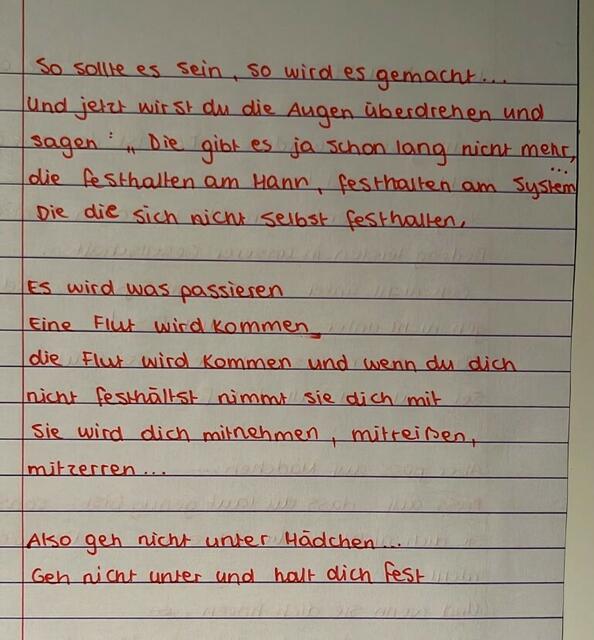 So sollte es sein, so wird es gemacht...
Und jetzt wirst du die Augen überdrehen und
sagen: „Die gibt es ja schon lang nicht mehr,
die festhalten am Mann, festhalten am System
...
Die die sich nicht selbst festhalten.
Es wird was passieren
Eine Flut wird kommen
die Flut wird kommen und wenn du dich
nicht festhältst nimmt sie dich mit
Sie wird dich mitnehmen, mitreißen,
mitzerren...
Also geh nicht unter Mädchen...
Geh nicht unter und halt dich fest